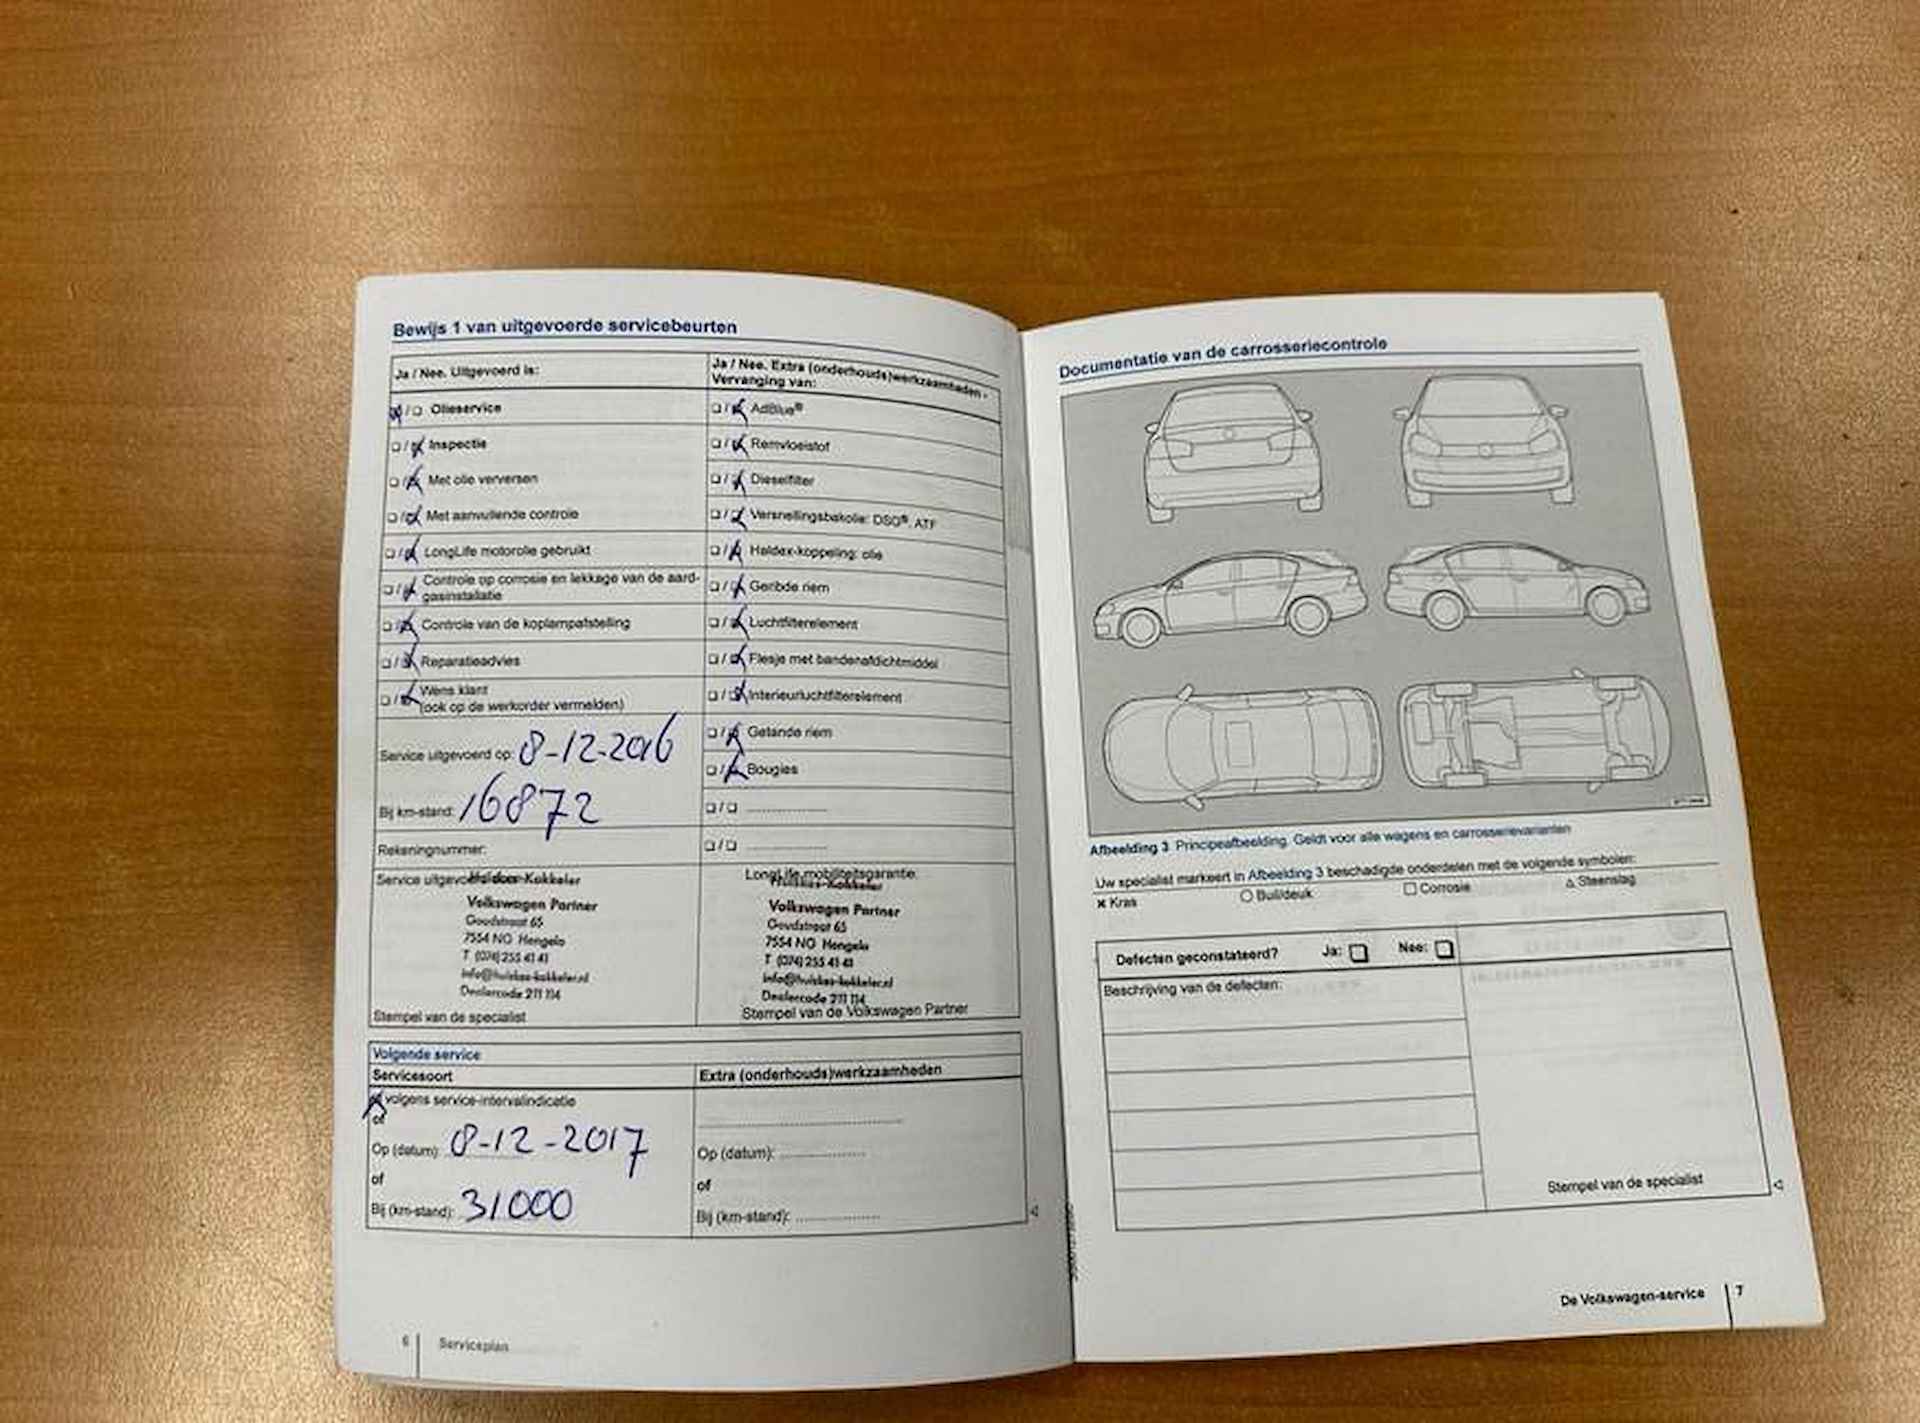 Bewijs 1 van uitgevoerde servicebeurten
Ja / Nee. Uitgevoerd is:
❏/❏ Olieservice
❏/❏ Inspectie
❏/❏ Met olie verversen
❏/❏ Met aanvullende controle
❏/❏ LongLife motorolie gebruikt
❏/❏ Controle op corrosie en lekkage van de aard-
gasinstallatie
❏/❏ Controle van de koplampafstelling
❏/❏ Reparatieadvies
❏/❏ Wens klant
(ook op de werkorder vermelden)
Service uitgevoerd op: 8-12-2016
Bij km-stand: 16872
Rekeningnummer:
Ja / Nee. Extra (onderhouds)werkzaamheden -
Vervanging van:
❏/❏ AdBlue®
❏/❏ Remvloeistof
❏/❏ Dieselfilter
❏/❏ Versnellingsbakolie: DSG®, ATF
❏/❏ Haldex-koppeling: olie
❏/❏ Geribde riem
❏/❏ Luchtfilterelement
❏/❏ Flesje met bandenafdichtmiddel
❏/❏ Interieurluchtfilterelement
❏/❏ Getande riem
❏/❏ Bougies
❏/❏ ................
❏/❏ ................
Service uitgevoerd door:
Huiskes-Kokkeler
Volkswagen Partner
Goudstraat 65
7554 NG Hengelo
T (074) 255 41 41
info@huiskes-kokkeler.nl
Dealercode 211 114
Stempel van de specialist
LongLife mobiliteitsgarantie:
Huiskes-Kokkeler
Volkswagen Partner
Goudstraat 65
7554 NG Hengelo
T (074) 255 41 41
info@huiskes-kokkeler.nl
Dealercode 211 114
Stempel van de Volkswagen Partner
Volgende service
Servicesoort
❏ volgens service-intervalindicatie
of
Op (datum): 8-12-2017
of
Bij (km-stand): 31000
Extra (onderhouds)werkzaamheden
Op (datum): ................
of
Bij (km-stand): ................
6 Serviceplan
Documentatie van de carrosseriecontrole
Afbeelding 3 Principeafbeelding. Geldt voor alle wagens en carrosserievarianten
Uw specialist markeert in Afbeelding 3 beschadigde onderdelen met de volgende symbolen:
× Kras ○ Buil/deuk □ Corrosie △ Steenslag
Defecten geconstateerd? Ja: ❏ Nee: ❏
Beschrijving van de defecten:
Stempel van de specialist
De Volkswagen-service 7